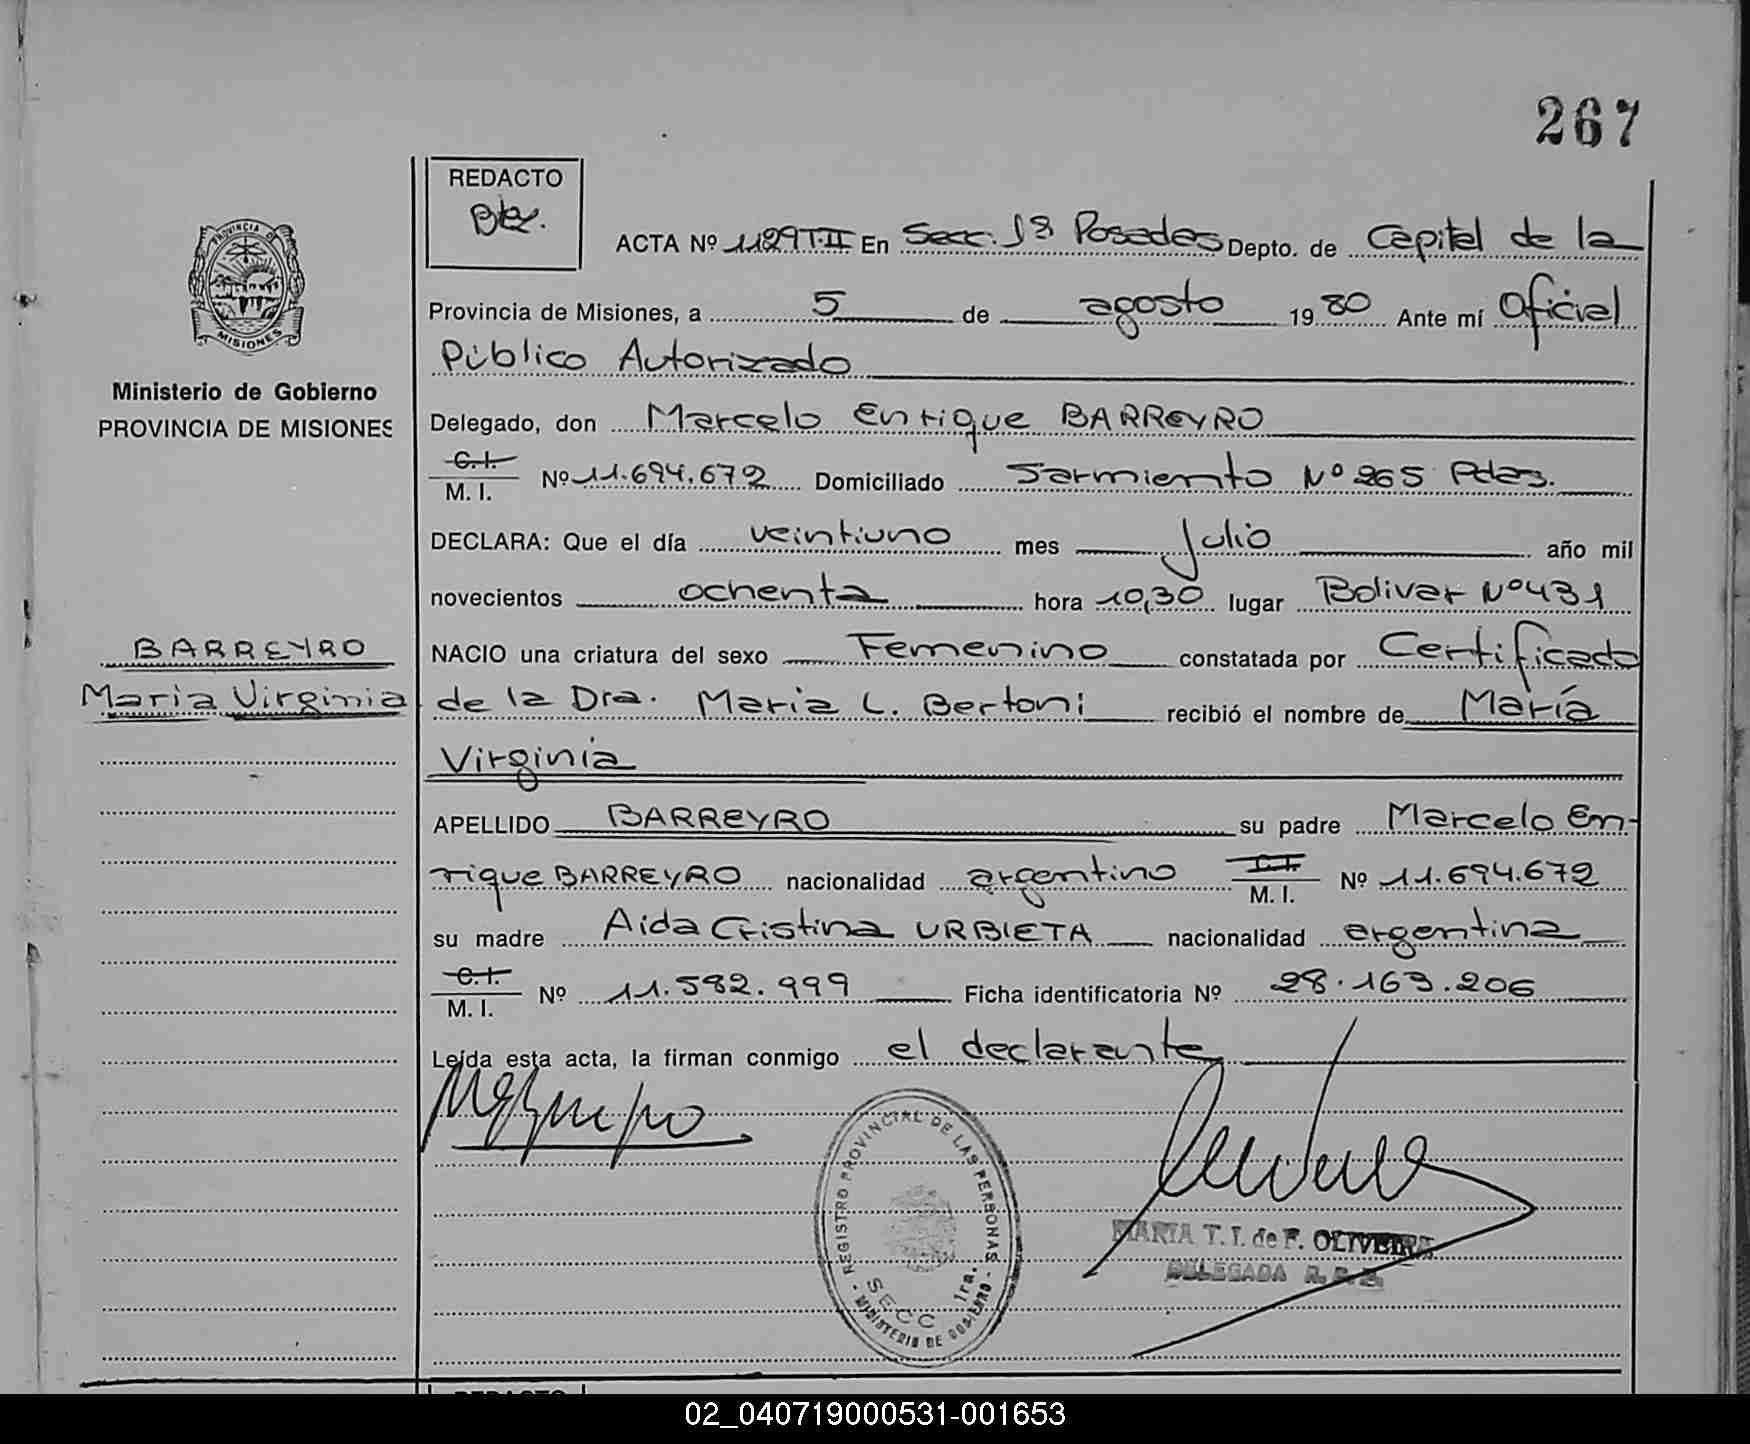 267
REDACTO
PROVINCIA DE MISIONES
ACTA Nº 1129 T.II En Secc. 1ª Posadas Depto. de Capital de la
Provincia de Misiones, a 5 de agosto 1980 Ante mí Oficial
Público Autorizado
Ministerio de Gobierno
PROVINCIA DE MISIONES
Delegado, don Marcelo Enrique BARREYRO
C.I.
M. I. Nº 11.694.672 Domiciliado Sarmiento Nº 265 Pdas.
DECLARA: Que el día veintiuno mes Julio año mil
novecientos ochenta hora 10,30 lugar Bolivar Nº 431
BARREYRO
Maria Virginia
NACIO una criatura del sexo Femenino constatada por Certificado
de la Dra. Maria L. Bertoni recibió el nombre de María
Virginia
APELLIDO BARREYRO su padre Marcelo En-
rique BARREYRO nacionalidad argentino C.I. M. I. Nº 11.694.672
su madre Aida Cristina URBIETA nacionalidad argentina
C.I.
M. I. Nº 11.582.999 Ficha identificatoria Nº 28.163.206
Leída esta acta, la firman conmigo el declarante
REGISTRO PROVINCIAL DE LAS PERSONAS
SECC 1ra.
MINISTERIO DE GOBIERNO
MARIA T. I. de F. OLIVEIRA
DELEGADA R. P. P.
REDACTO
02_040719000531-001653